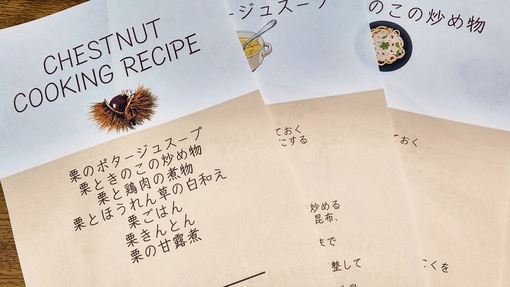 CHESTNUT
COOKING RECIPE
栗のポタージュスープ
栗ときのこの炒め物
栗と鶏肉の煮物
栗とほうれん草の白和え
栗ごはん
栗きんとん
栗の甘露煮
タージュスープ
ておく
にする
炒める
昆布、
まで
整して
のこの炒め物
ておく
こくを